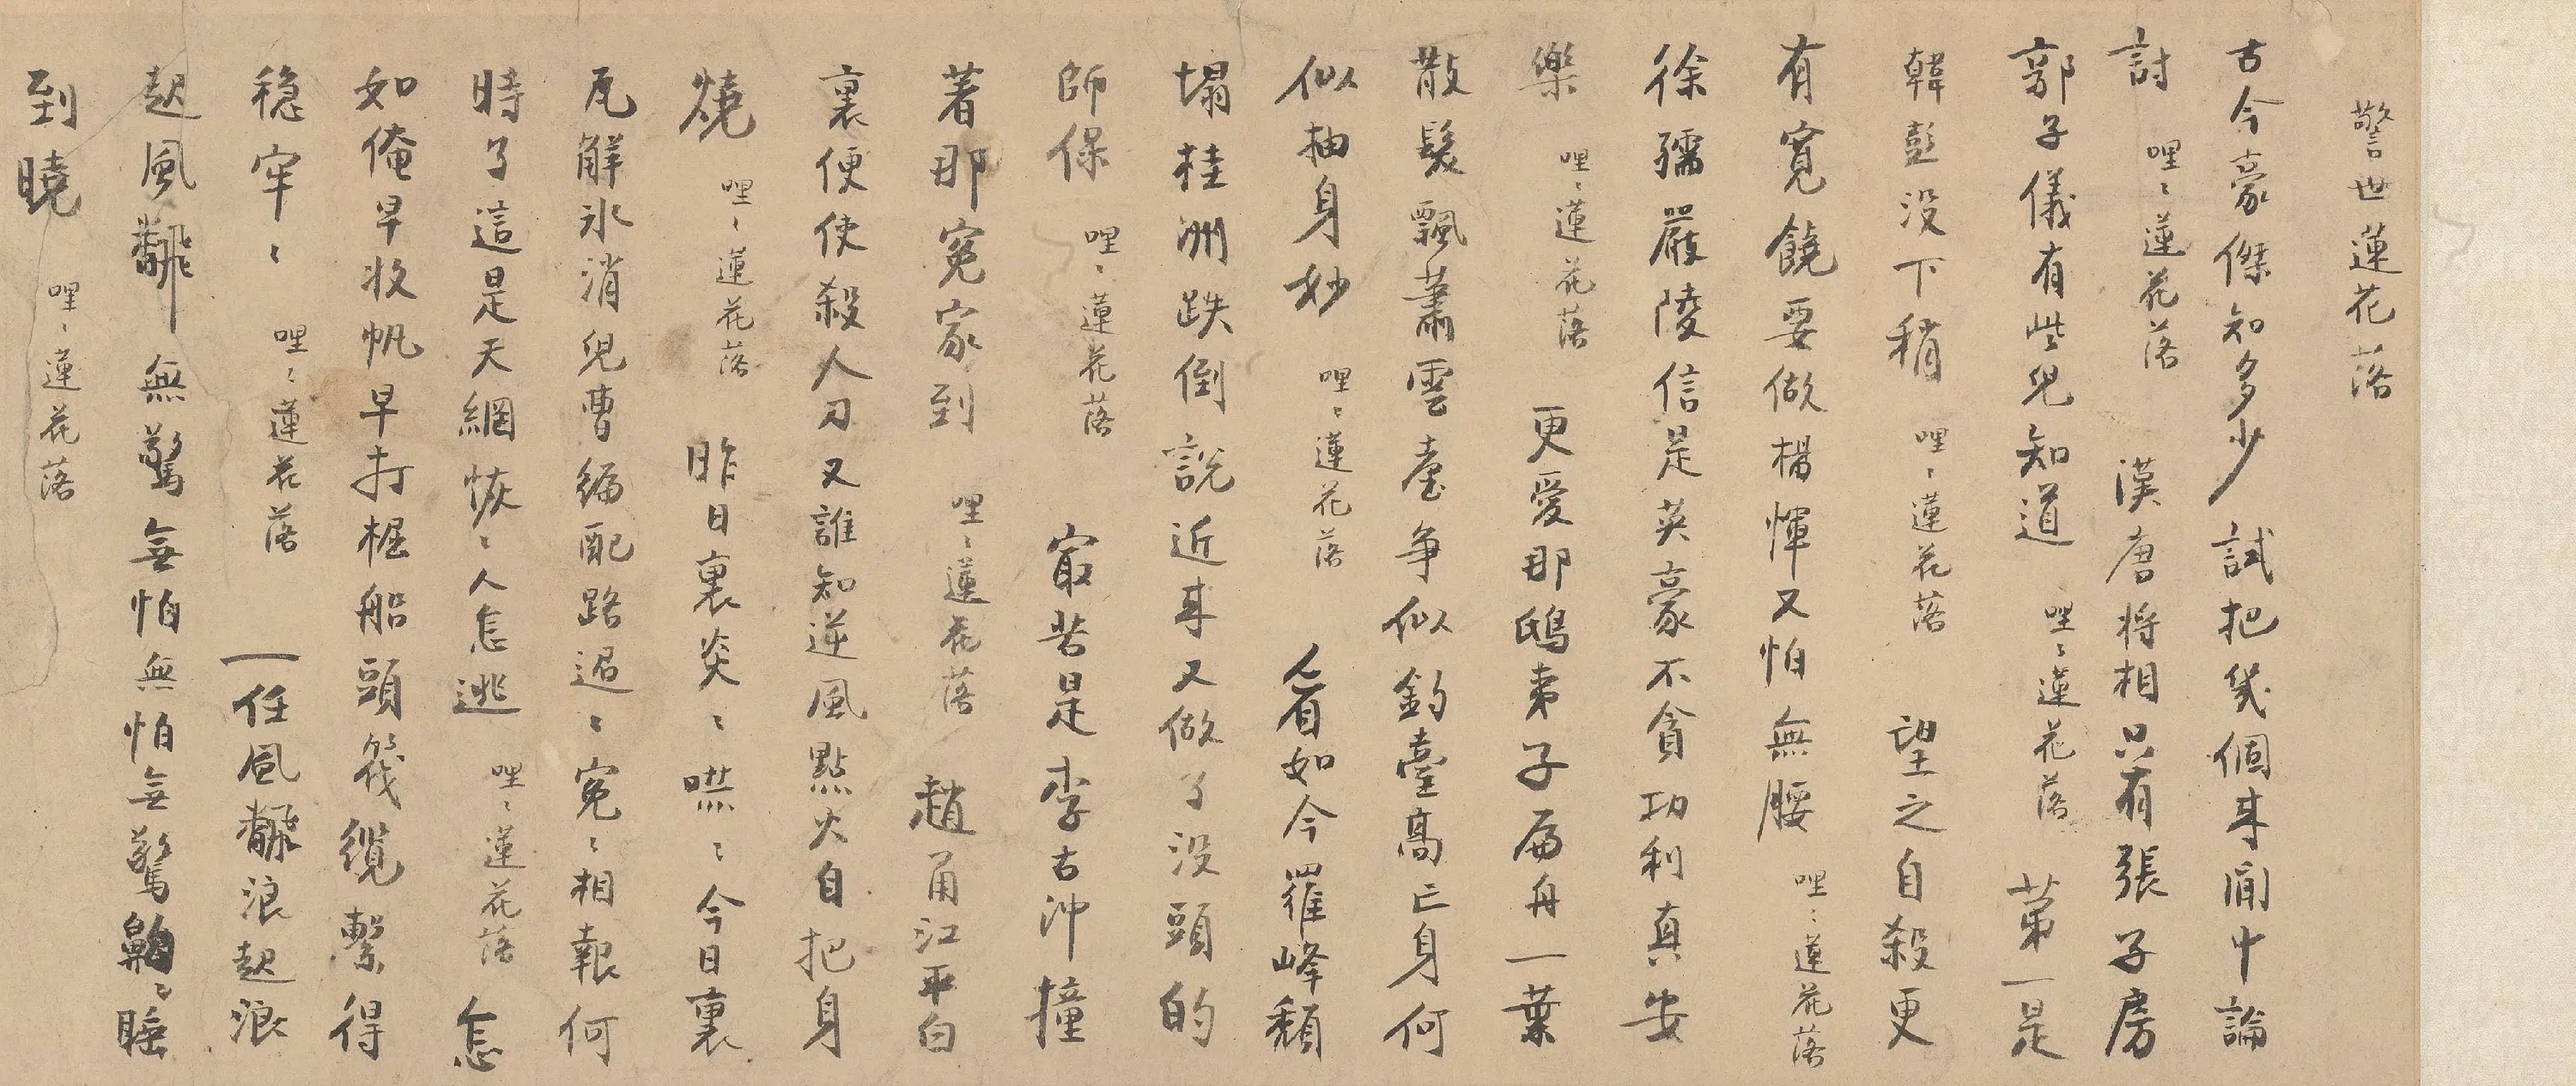 警世蓮花落
古今豪傑知多少試把幾個來閒中論
討 哩〻蓮花落 漢唐將相只有張子房
郭子儀有些兒知道 哩〻蓮花落 第一是
韓彭没下稍 哩〻蓮花落 望之自殺更
有寬饒要做楊惲又怕無腰 哩〻蓮花落
徐孺嚴陵信是英豪不貪功利真安
樂 哩〻蓮花落 更愛那鴟夷子扁舟一葉
散髮飄蕭雲臺争似釣臺高亡身何
似抽身妙 哩〻蓮花落 看如今羅峰頹
塌桂洲跌倒説近来又做了没頭的
師保 哩〻蓮花落 㝡苦是李古冲撞
著那冤家到 哩〻蓮花落 趙甬江平白
裏便使殺人刀又誰知逆風點火自把身
燒 哩〻蓮花落 昨日裏炎〻㷀〻今日裏
瓦解氷消兒曹編配路迢〻冤〻相報何
時了這是天網恢〻人怎逃 哩〻蓮花落 怎
如俺早收帆早打椗船頭筏纜繫得
穏牢〻 哩〻蓮花落 一任風飜浪起浪
起風飜 無驚無怕無怕無驚齁〻睡
到曉 哩〻蓮花落